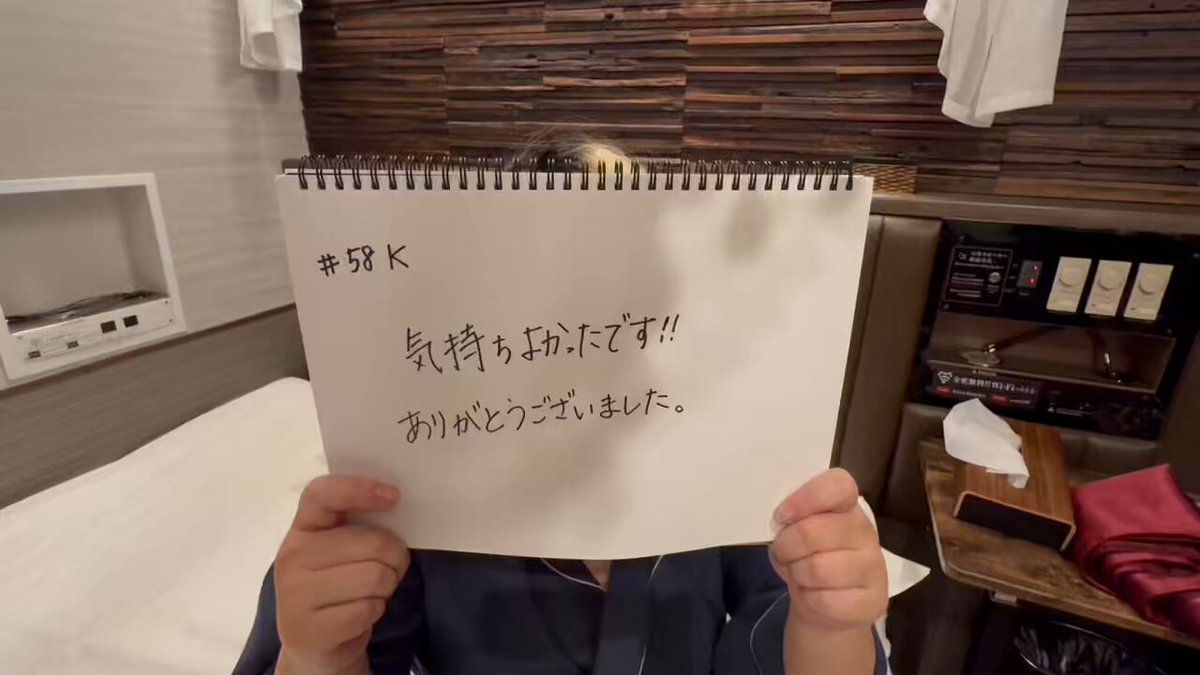 #58 K
気持ちよかったです!!
ありがとうございました。